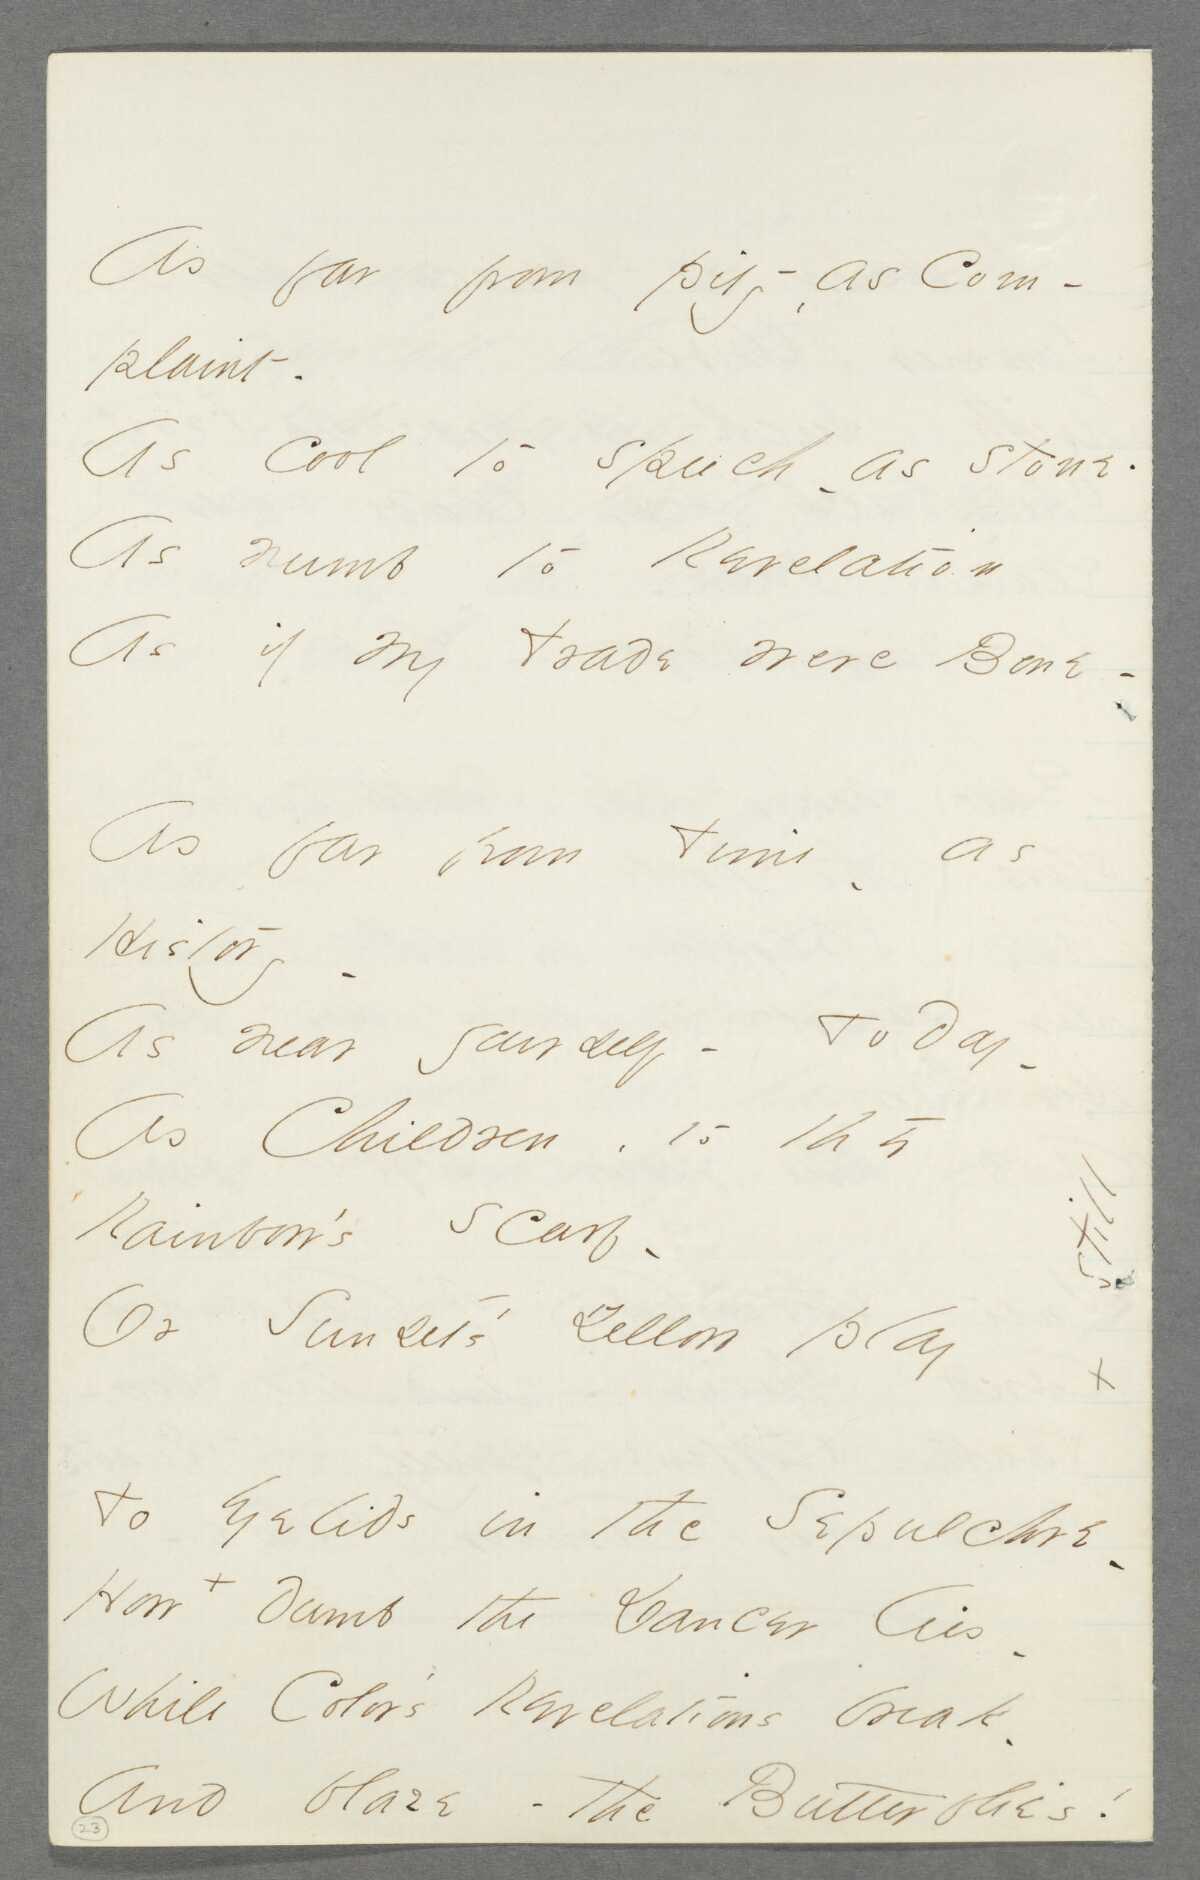 As far from pity - as Com -
plaint -
As cool to speech - as stone -
As numb to Revelation
As if my trade were Bone -
As far from time - as
History -
As near yourself - Today -
As Children, to the
Rainbow's scarf -
Or Sunset's Yellow play
To eyelids in the Sepulchre -
How + dumb the Dancer lies -
While Color's Revelations break -
And blaze - the Butterflies!
+ still
23